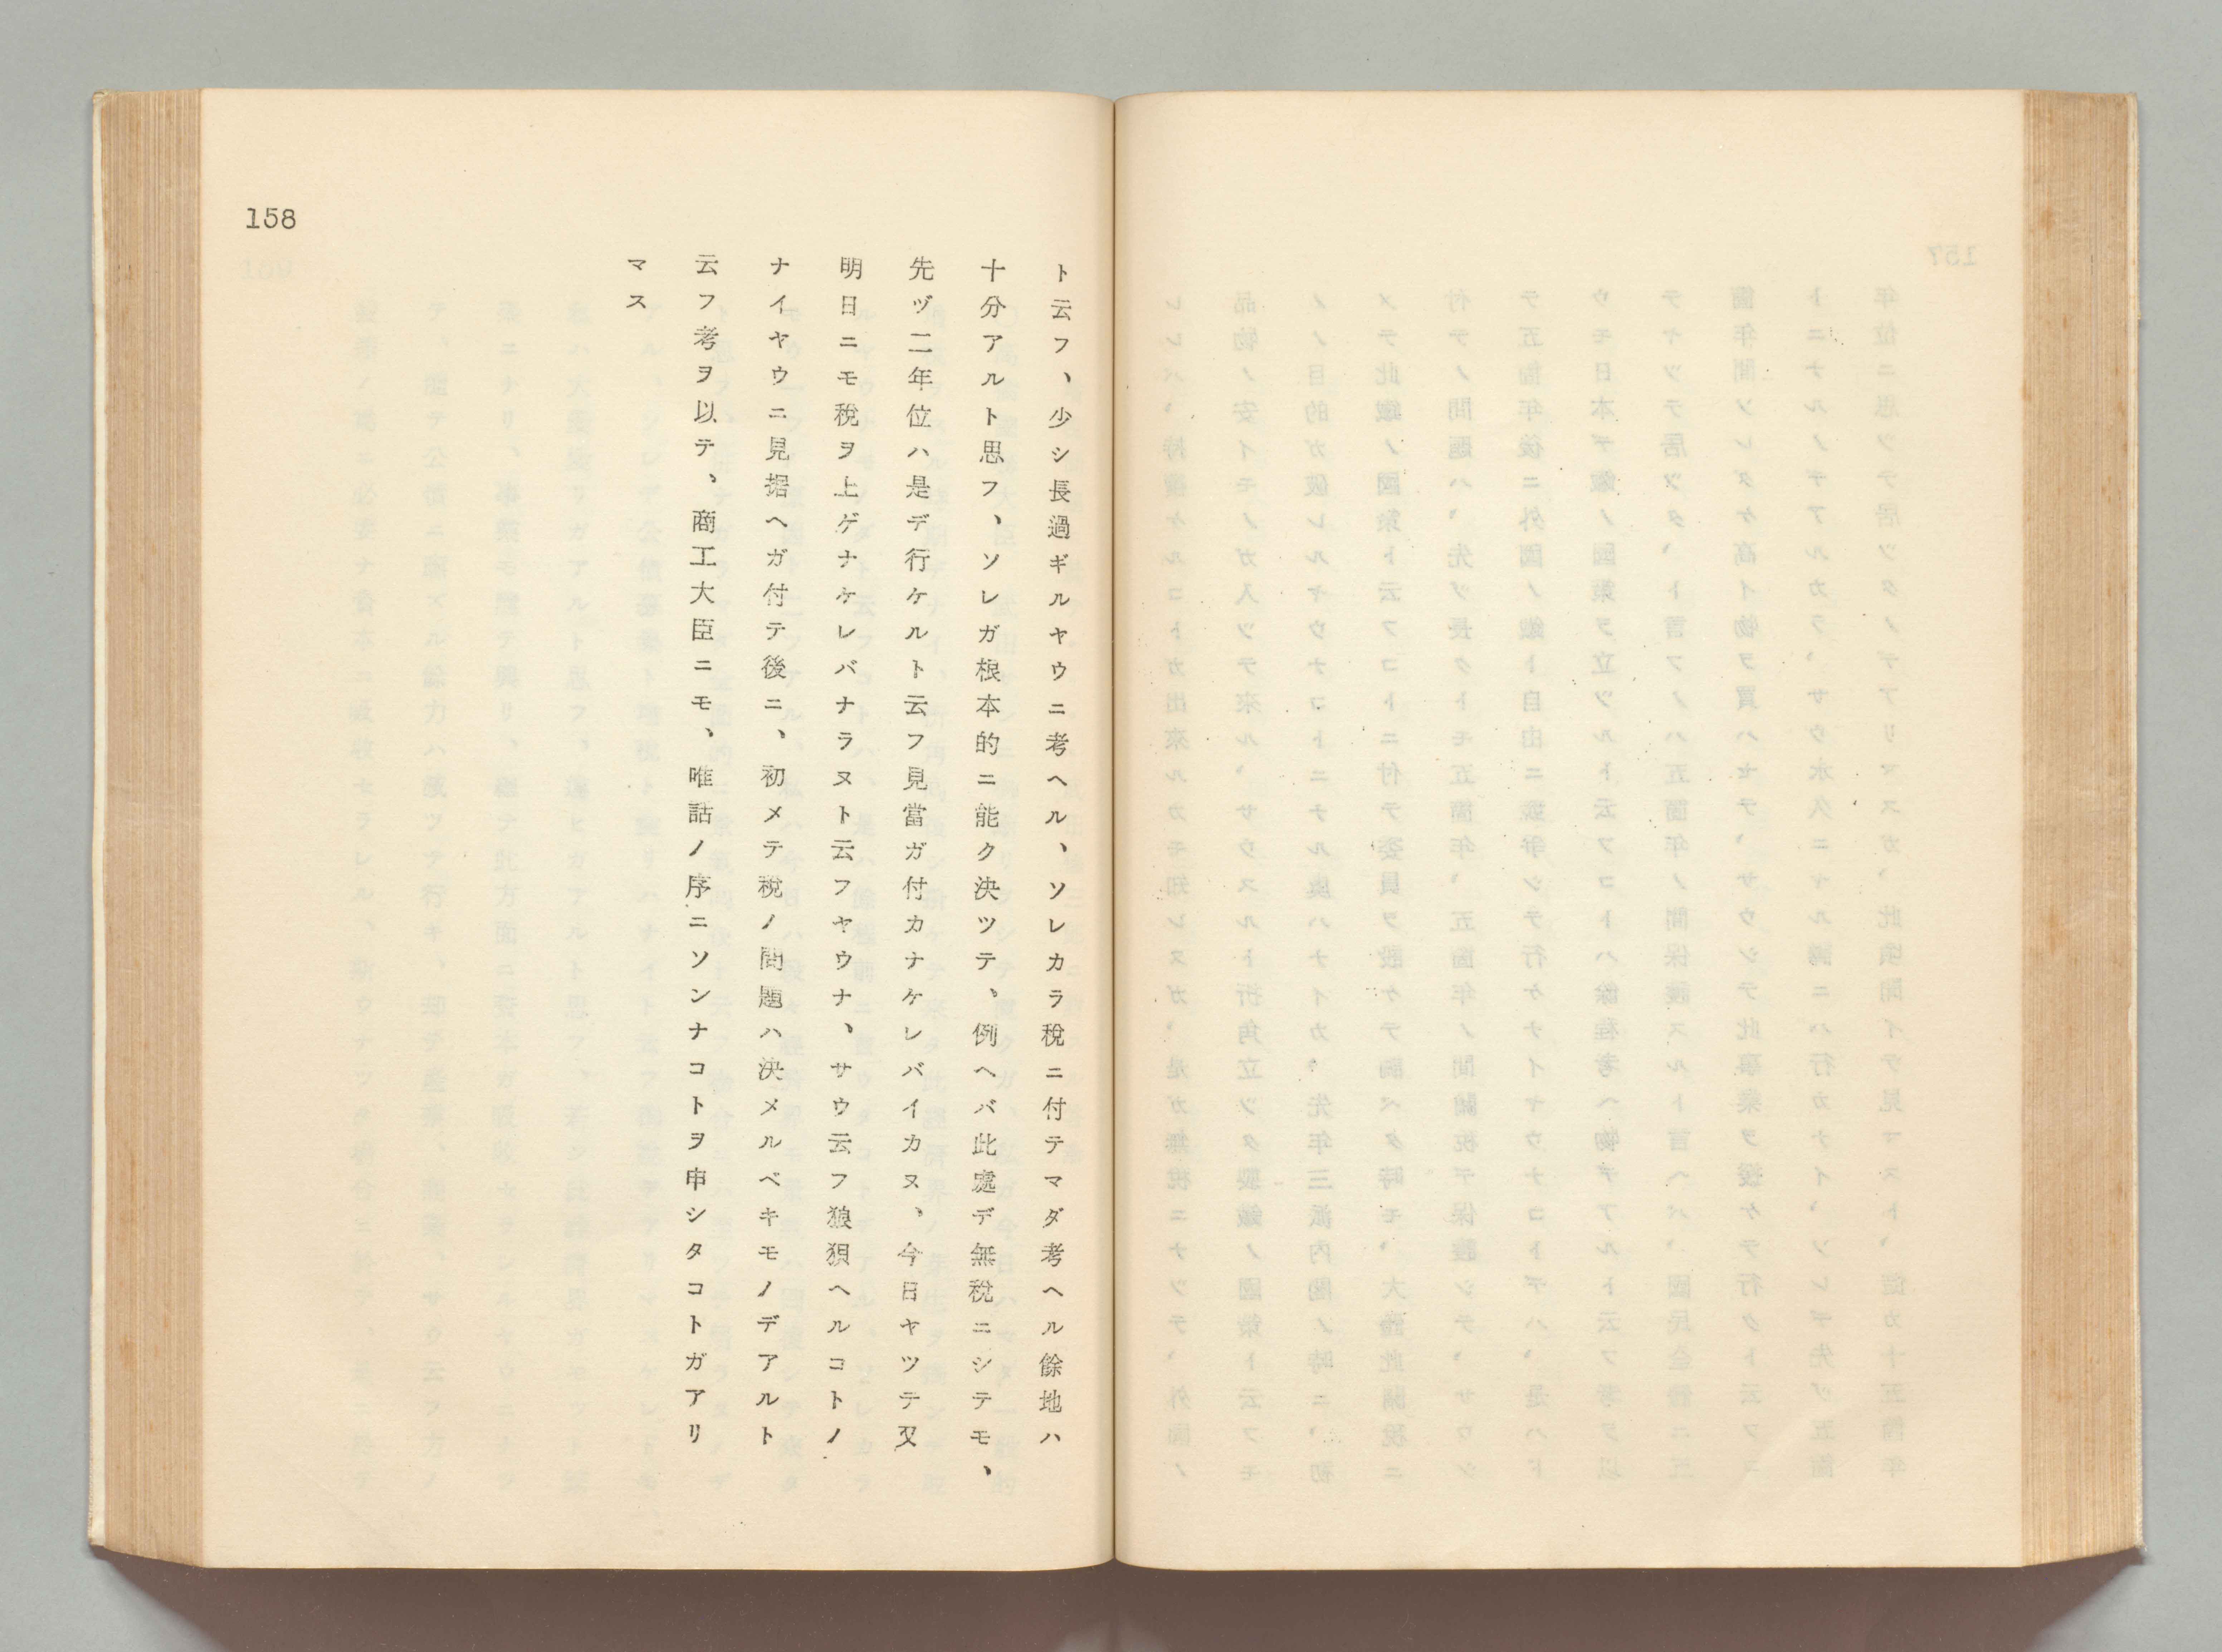 158
ト云フ、少シ長過ギルヤウニ考ヘル、ソレカラ稅ニ付テマダ考ヘル餘地ハ
十分アルト思フ、ソレガ根本的ニ能ク決ツテ、例ヘバ此處デ無稅ニシテモ、
先ヅ二年位ハ是デ行ケルト云フ見當ガ付カナケレバイカヌ、今日ヤツテ又
明日ニモ稅ヲ上ゲナケレバナラヌト云フヤウナ、サウ云フ狼狽ヘルコトノ
ナイヤウニ見据ヘガ付テ後ニ、初メテ稅ノ問題ハ決メルベキモノデアルト
云フ考ヲ以テ、商工大臣ニモ、唯話ノ序ニソンナコトヲ申シタコトガアリ
マス